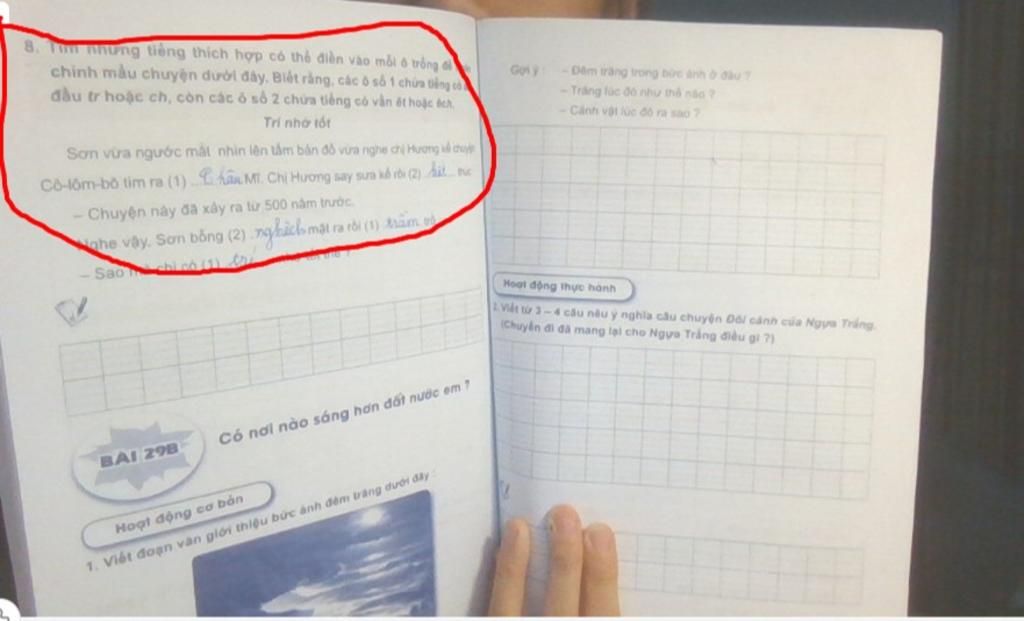 8. Tìm những tiếng thích hợp có thể điền vào mỗi ô trống để
chỉnh mẩu chuyện dưới đây. Biết rằng, các ô số 1 chứa tiếng có
đầu tr hoặc ch, còn các ô số 2 chứa tiếng có vần êt hoặc êch.
Trí nhớ tốt
Sơn vừa ngước mắt nhìn lên tấm bản đồ vừa nghe chị Hương kể chuyện
Cô-lôm-bô tìm ra (1) Mĩ. Chị Hương say sưa kể rồi (2) thúc
– Chuyện này đã xảy ra từ 500 năm trước.
Nghe vậy, Sơn bỗng (2) nghếch mặt ra rồi (1) trầm trồ
– Sao mà chị có (1) trí
BÀI 29B
Có nơi nào sáng hơn đất nước em ?
Hoạt động cơ bản
1. Viết đoạn văn giới thiệu bức ảnh đêm trăng dưới đây :
Gợi ý : – Đêm trăng trong bức ảnh ở đâu ?
– Trăng lúc đó như thế nào ?
– Cảnh vật lúc đó ra sao ?
Hoạt động thực hành
1. Viết từ 3 – 4 câu nêu ý nghĩa câu chuyện Đôi cánh của Ngựa Trắng.
(Chuyến đi đã mang lại cho Ngựa Trắng điều gì ?)